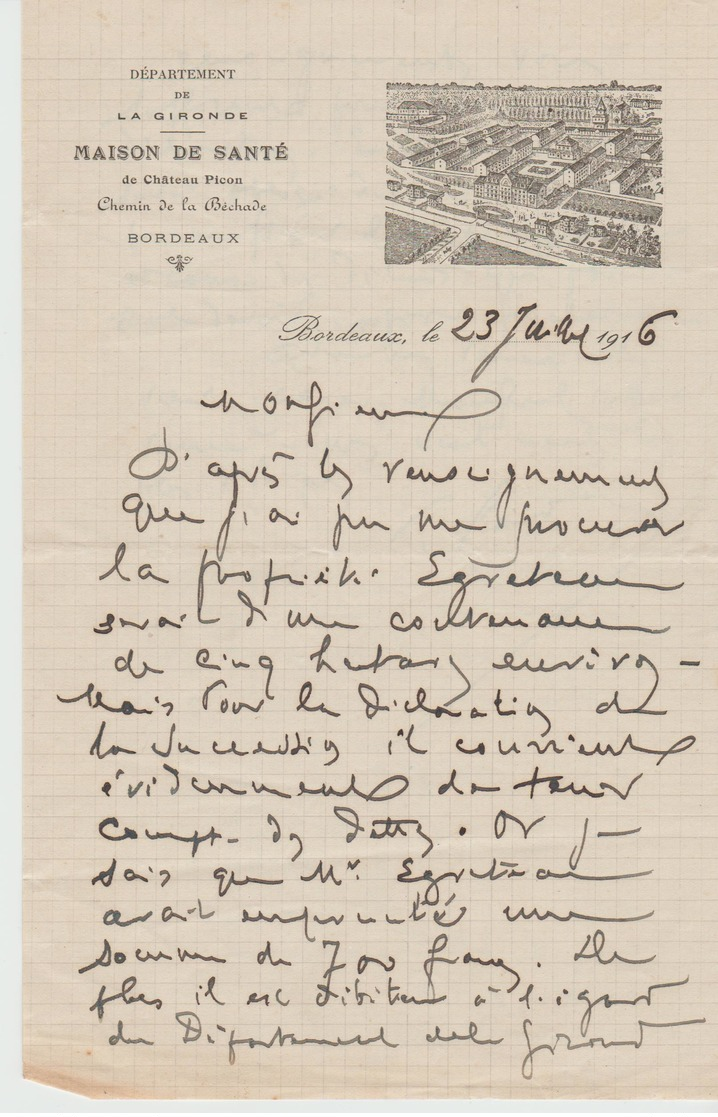 DÉPARTEMENT
DE
LA GIRONDE
MAISON DE SANTÉ
de Château Picon
Chemin de la Béchade
BORDEAUX
Bordeaux, le 23 Juillet 1916
Monsieur
D'après les renseignements
que j'ai pu me procurer
la propriété Egreteau
serait d'une contenance
de cinq hectares environ –
Mais pour la déclaration de
la succession il convient
évidemment de tenir
compte des dettes. Or je
sais que Mr. Egreteau
avait emprunté une
somme de 700 francs. De
plus il est débiteur à l'égard
du Département de la Gironde